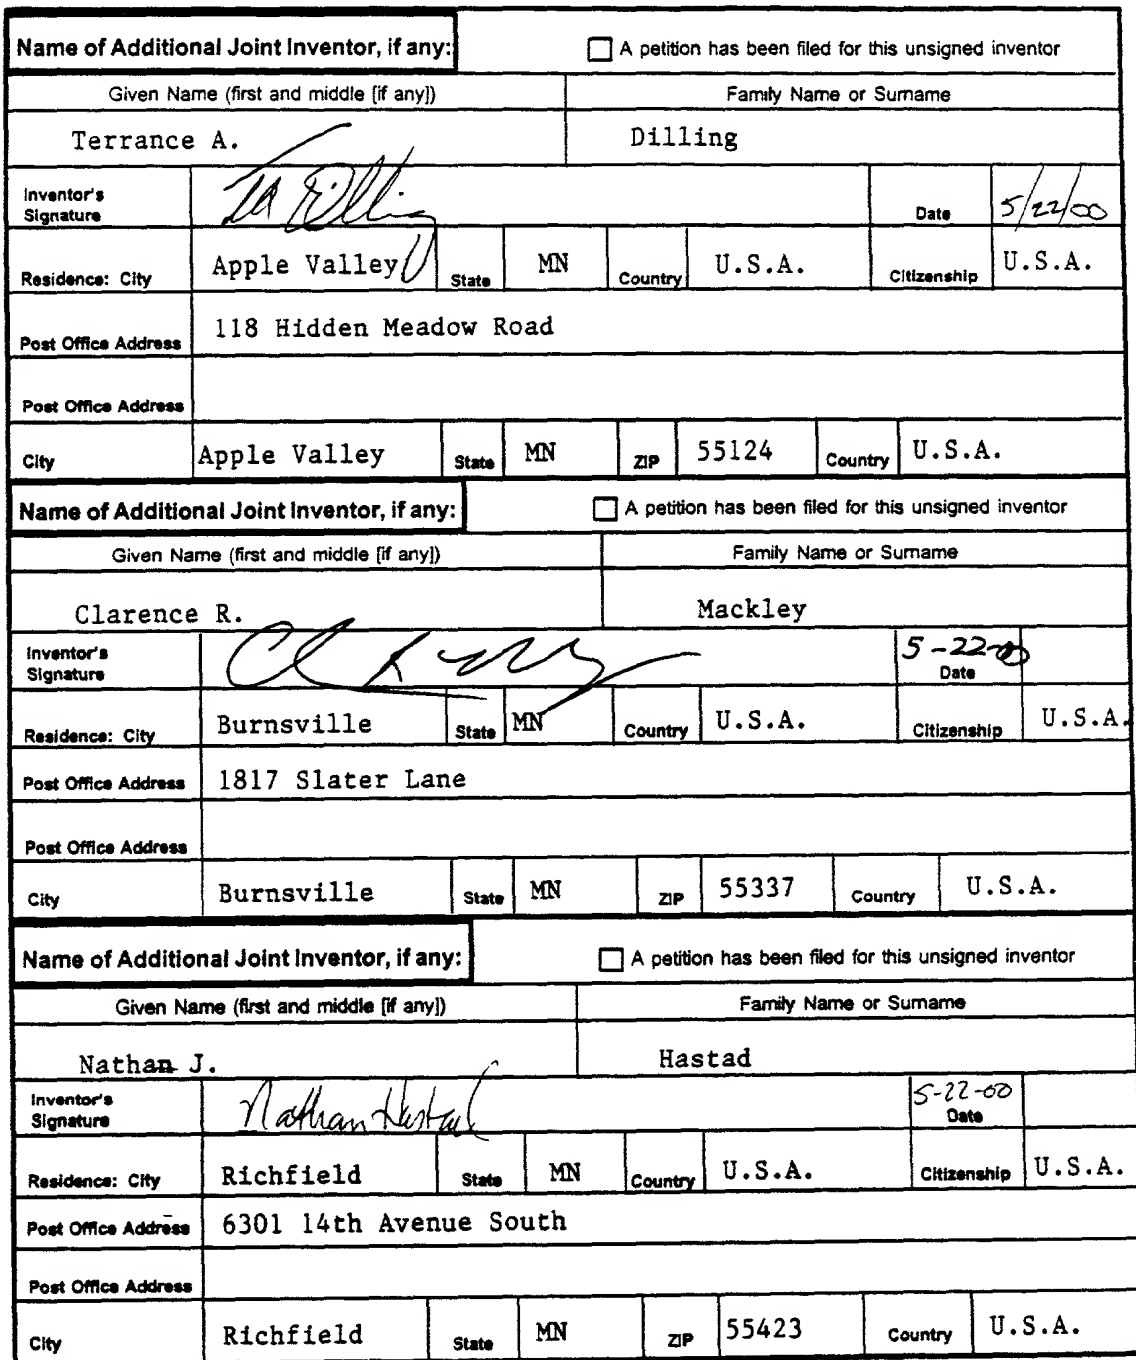 Name of Additional Joint Inventor, if any: A petition has been filed for this unsigned inventor
Given Name (first and middle [if any]) Family Name or Surname
Terrance A. Dilling
Inventor's Signature Date 5/22/00
Residence: City Apple Valley State MN Country U.S.A. Citizenship U.S.A.
Post Office Address 118 Hidden Meadow Road
Post Office Address
City Apple Valley State MN ZIP 55124 Country U.S.A.
Name of Additional Joint Inventor, if any: A petition has been filed for this unsigned inventor
Given Name (first and middle [if any]) Family Name or Surname
Clarence R. Mackley
Inventor's Signature 5-22-00 Date
Residence: City Burnsville State MN Country U.S.A. Citizenship U.S.A.
Post Office Address 1817 Slater Lane
Post Office Address
City Burnsville State MN ZIP 55337 Country U.S.A.
Name of Additional Joint Inventor, if any: A petition has been filed for this unsigned inventor
Given Name (first and middle [if any]) Family Name or Surname
Nathan J. Hastad
Inventor's Signature Nathan Hastad 5-22-00 Date
Residence: City Richfield State MN Country U.S.A. Citizenship U.S.A.
Post Office Address 6301 14th Avenue South
Post Office Address
City Richfield State MN ZIP 55423 Country U.S.A.